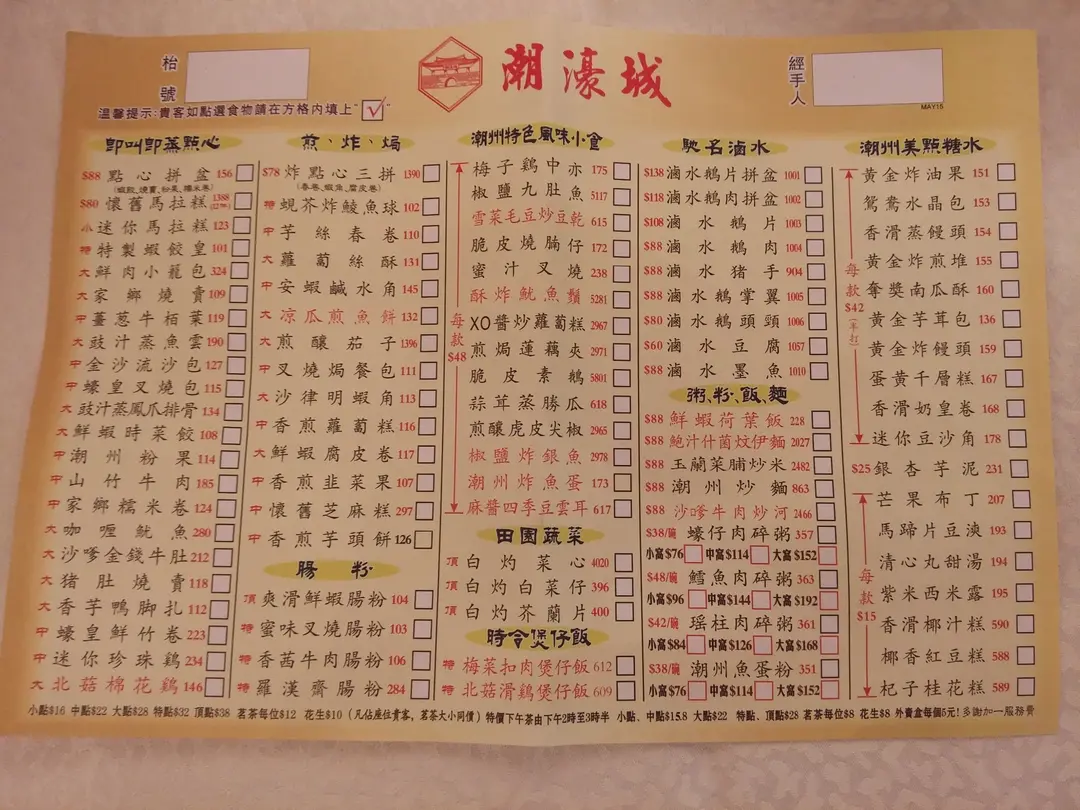 枱號
潮濠城
經手人
MAY15
溫馨提示:貴客如點選食物請在方格內填上"√"
即叫即蒸點心
$88 點心拼盆 156
(蝦餃、燒賣、粉菓、糯米卷)
$80 懷舊馬拉糕 1388
小 迷你馬拉糕 123
特 特製蝦餃皇 101
大 鮮肉小籠包 324
大 家鄉燒賣 109
中 薑葱牛栢葉 119
大 豉汁蒸魚雲 190
中 金沙流沙包 127
中 蠔皇叉燒包 115
大 豉汁蒸鳳爪排骨 134
大 鮮蝦時菜餃 108
中 潮州粉果 114
中 山竹牛肉 185
中 家鄉糯米卷 124
大 咖喱魷魚 280
大 沙嗲金錢牛肚 212
大 猪肚燒賣 118
大 香芋鴨脚扎 112
中 蠔皇鮮竹卷 223
中 迷你珍珠鷄 234
大 北菇棉花鷄 146
煎、炸、焗
$78 炸點心三拼 1390
(春卷、蝦角、腐皮卷)
特 蜆芥炸鯪魚球 102
中 芋絲春卷 110
大 蘿蔔絲酥 131
中 安蝦鹹水角 145
大 凉瓜煎魚餅 132
大 煎釀茄子 1396
中 叉燒焗餐包 111
大 沙律明蝦角 113
中 香煎蘿蔔糕 116
大 鮮蝦腐皮卷 117
中 香煎韭菜果 107
中 懷舊芝麻糕 297
中 香煎芋頭餅 126
腸粉
頂 爽滑鮮蝦腸粉 104
特 蜜味叉燒腸粉 103
特 香茜牛肉腸粉 106
特 羅漢齋腸粉 284
潮州特色風味小食
每款$48
梅子鷄中亦 175
椒鹽九肚魚 5117
雪菜毛豆炒豆乾 615
脆皮燒腩仔 172
蜜汁叉燒 238
酥炸魷魚鬚 5281
XO醬炒蘿蔔糕 2967
煎焗蓮藕夾 2971
脆皮素鵝 5801
蒜茸蒸勝瓜 618
煎釀虎皮尖椒 2965
椒鹽炸銀魚 2978
潮州炸魚蛋 173
麻醬四季豆雲耳 617
田園蔬菜
頂 白灼菜心 4020
頂 白灼白菜仔 396
頂 白灼芥蘭片 400
時令煲仔飯
特 梅菜扣肉煲仔飯 612
特 北菇滑鷄煲仔飯 609
馳名滷水
$138 滷水鵝片拼盆 1001
$118 滷水鵝肉拼盆 1002
$108 滷水鵝片 1003
$88 滷水鵝肉 1004
$88 滷水猪手 904
$88 滷水鵝掌翼 1005
$80 滷水鵝頭頸 1006
$60 滷水豆腐 1057
$88 滷水墨魚 1010
粥、粉、飯、麵
$88 鮮蝦荷葉飯 228
$88 鮑汁什菌炆伊麵 2027
$88 玉蘭菜脯炒米 2482
$88 潮州炒麵 863
$88 沙嗲牛肉炒河 2466
$38/碗 蠔仔肉碎粥 357
小窩$76 中窩$114 大窩$152
$48/碗 鱈魚肉碎粥 363
小窩$96 中窩$144 大窩$192
$42/碗 瑶柱肉碎粥 361
小窩$84 中窩$126 大窩$168
$38/碗 潮州魚蛋粉 351
小窩$76 中窩$114 大窩$152
潮州美點糖水
每款$42(半打)
黃金炸油果 151
鴛鴦水晶包 153
香滑蒸饅頭 154
黃金炸煎堆 155
奪獎南瓜酥 160
黃金芋茸包 136
黃金炸饅頭 159
蛋黃千層糕 167
香滑奶皇卷 168
迷你豆沙角 178
$25 銀杏芋泥 231
每款$15
芒果布丁 207
馬蹄片豆湙 193
清心丸甜湯 194
紫米西米露 195
香滑椰汁糕 590
椰香紅豆糕 588
杞子桂花糕 589
小點$16 中點$22 大點$28 特點$32 頂點$38 茗茶每位$12 花生$10 (凡佔座位貴客,茗茶大小同價) 特價下午茶由下午2時至3時半 小點、中點$15.8 大點$22 特點、頂點$28 茗茶每位$8 花生$8 外賣盒每個5元! 多謝加一服務費